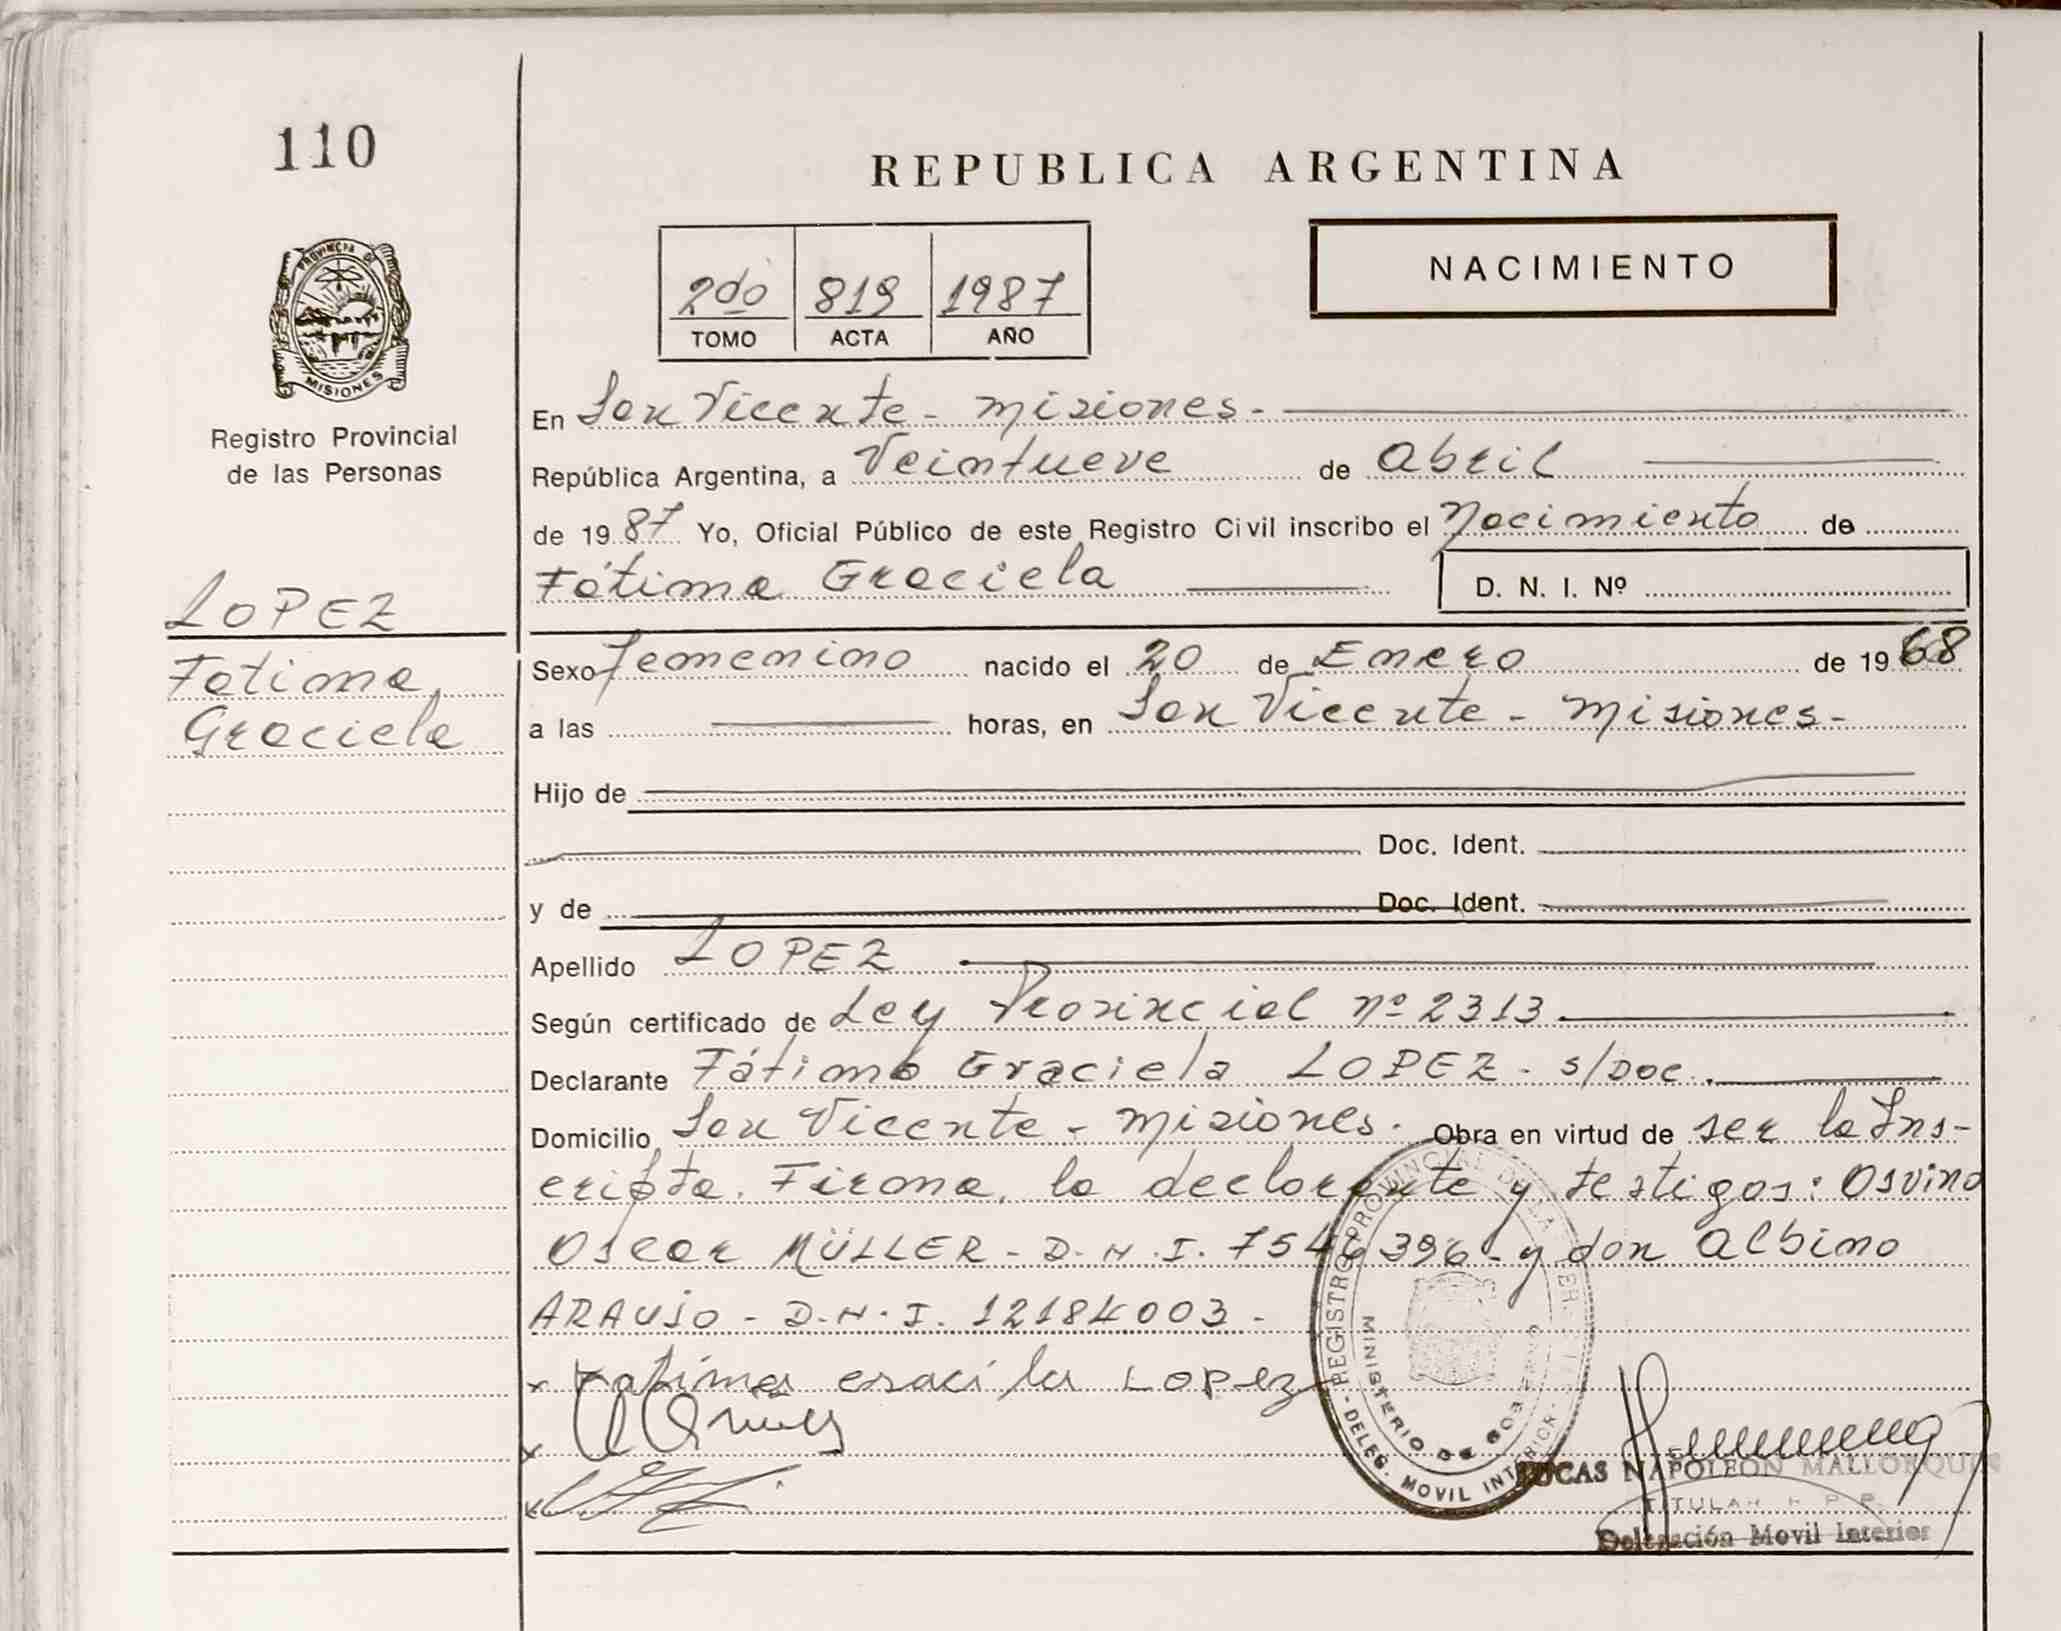 110
REPUBLICA ARGENTINA
PROVINCIA DE
MISIONES
Registro Provincial
de las Personas
2do 819 1987
TOMO ACTA AÑO
NACIMIENTO
En San Vicente - Misiones -
República Argentina, a Veintueve de Abril
de 1987 Yo, Oficial Público de este Registro Civil inscribo el Nacimiento de
Fátima Graciela D. N. I. Nº
LOPEZ
Fatima
Graciela
Sexo femenino nacido el 20 de Enero de 1968
a las horas, en San Vicente - Misiones -
Hijo de
Doc. Ident.
y de Doc. Ident.
Apellido LOPEZ
Según certificado de Ley Provincial nº 2313.
Declarante Fátima Graciela LOPEZ - s/Doc.
Domicilio San Vicente - Misiones. Obra en virtud de ser la Ins-
cripta. Firman, la declarante y testigos: Osvino
Oscar MÜLLER - D.N.I. 7546396 - y don Albino
ARAUJO - D.N.I. 12184003 -
x Fatima eraci la LOPez
REGISTRO PROVINCIAL DE LA PER
MINISTERIO DE GOBIERNO
- DELEG. MOVIL INTERIOR -
LUCAS NAPOLEON MALLORQUIN
TITULAR R P P.
Delegación Movil Interior